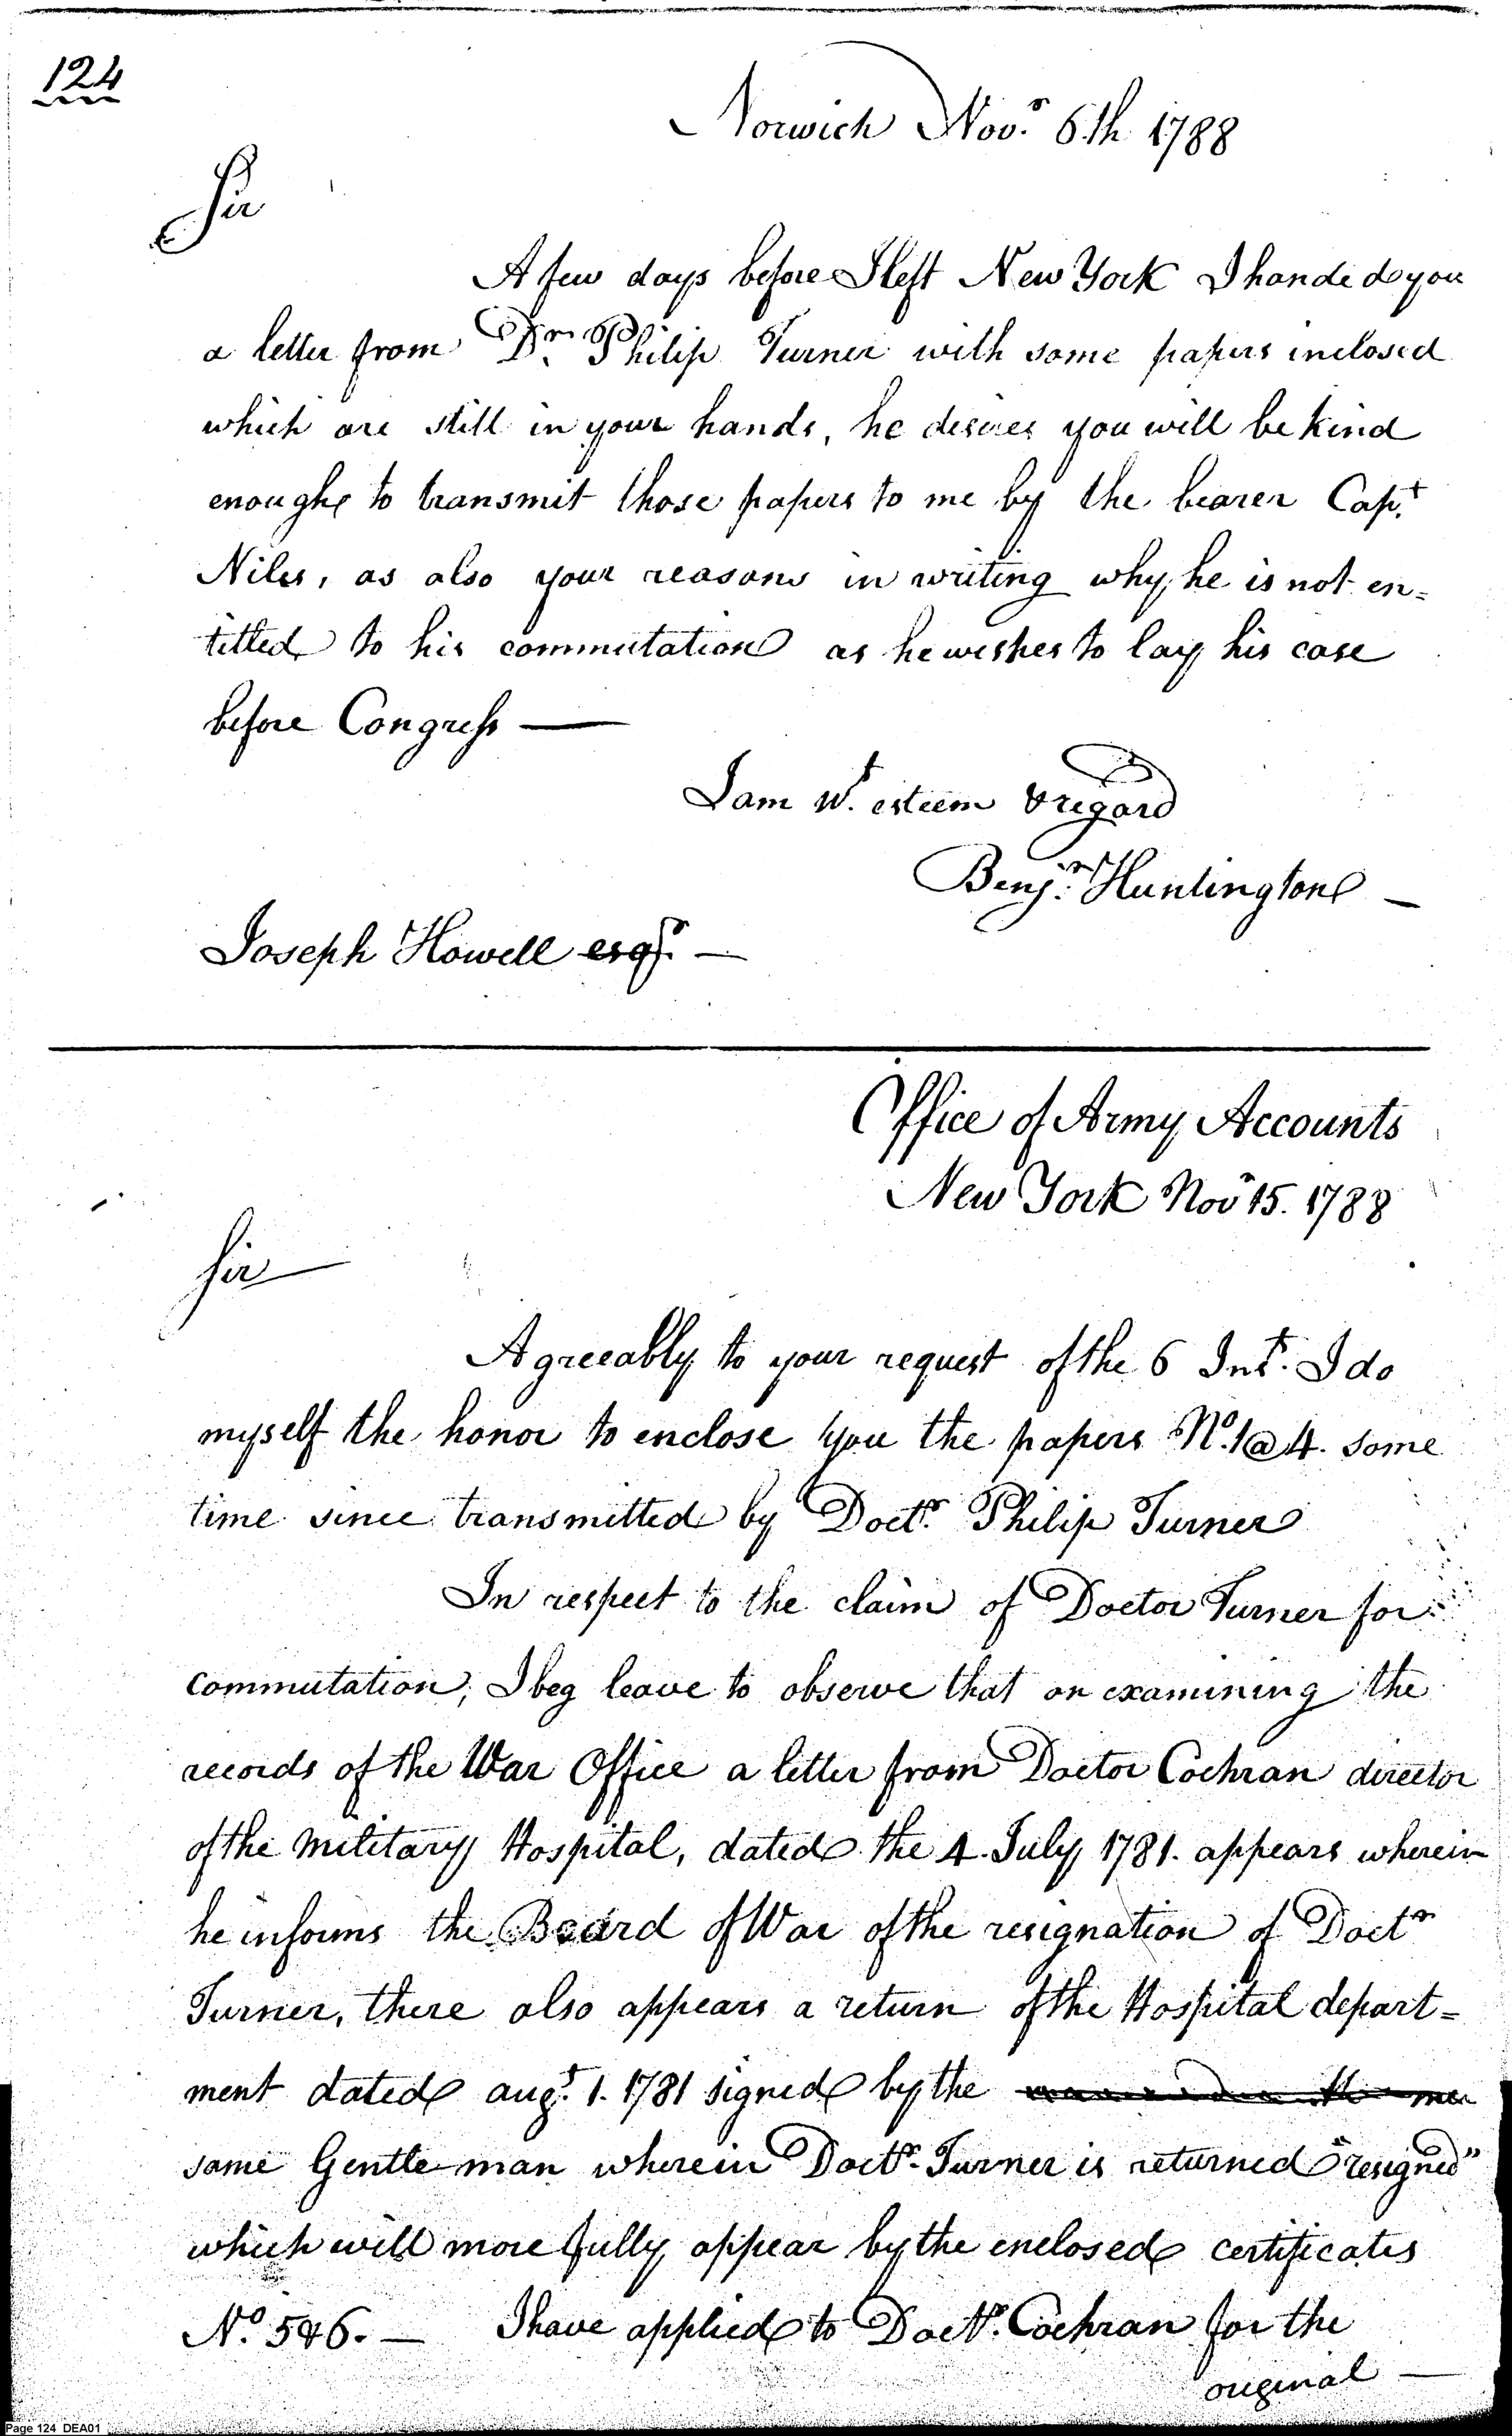 124
Norwich Nov.r 6th 1788
Sir
A few days before I left New York I handed you
a letter from Dr. Philip Turner with some papers inclosed
which are still in your hands, he desires you will be kind
enough to transmit those papers to me by the bearer Cap.t
Niles, as also your reasons in writing why he is not en=
titled to his commutation as he wishes to lay his case
before Congress —
I am w.t esteem & regard
Benj.n Huntington —
Joseph Howell esqr. —
Office of Army Accounts
New York Nov.r 15. 1788
Sir
Agreeably to your request of the 6 Inst. I do
myself the honor to enclose you the papers No. 1 @ 4. some
time since transmitted by Doctr. Philip Turner
In respect to the claim of Doctor Turner for
commutation, I beg leave to observe that on examining the
records of the War Office a letter from Doctor Cochran director
of the military Hospital, dated the 4. July 1781. appears wherein
he informs the Board of War of the resignation of Doctr
Turner, there also appears a return of the Hospital depart=
ment dated augt. 1. 1781 signed by the
same Gentleman wherein Doctr. Turner is returned "resigned"
which will more fully appear by the enclosed certificates
No. 5 & 6. — I have applied to Doctr. Cochran for the
original —
Page 124 DEA01